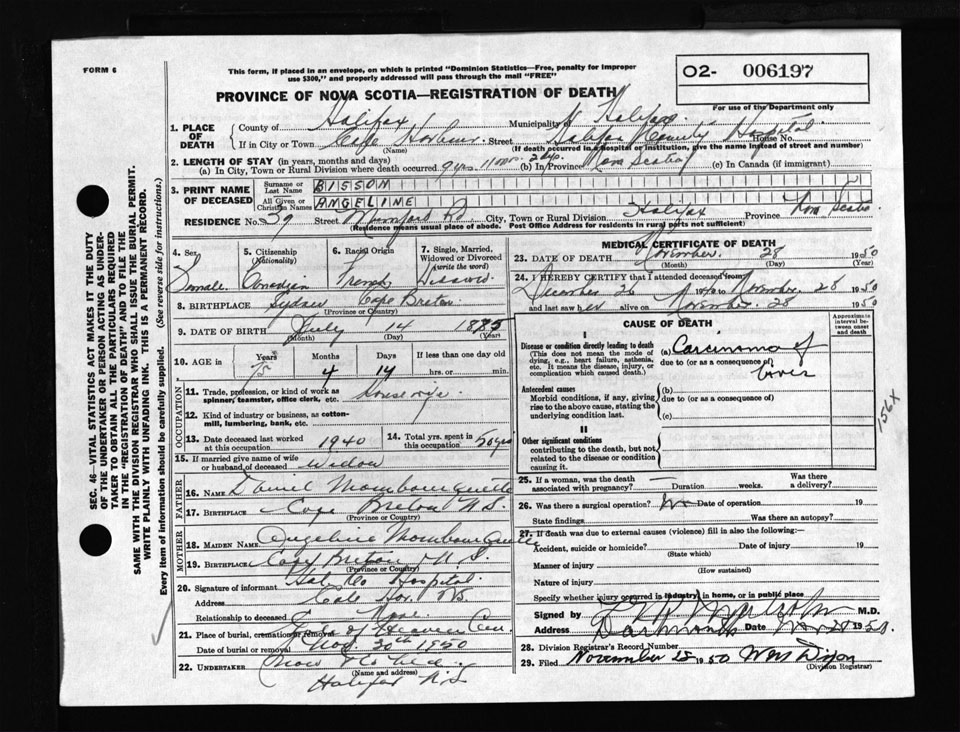 FORM 6
This form, if placed in an envelope, on which is printed "Dominion Statistics—Free, penalty for improper
use $300," and properly addressed will pass through the mail "FREE"
02- 006197
For use of the Department only
PROVINCE OF NOVA SCOTIA—REGISTRATION OF DEATH
1. PLACE OF DEATH
County of Halifax Municipality Halifax
If in City or Town Cole Harbour Street Halifax County Hospital House No.
(Name) (If death occurred in hospital or institution, give the name instead of street and number)
2. LENGTH OF STAY (in years, months and days)
(a) In City, Town or Rural Division where death occurred 9 yrs. 11 mos. 2 dys. (b) In Province Nova Scotia (c) In Canada (if immigrant)
3. PRINT NAME OF DECEASED
Surname or Last Name BISSON
All Given or Christian Names ANGELINE
RESIDENCE No. 39 Street Mumford Rd. City, Town or Rural Division Halifax Province Nova Scotia
(Residence means usual place of abode. Post Office Address for residents in rural parts not sufficient)
4. Sex
Female
5. Citizenship (Nationality)
Canadian
6. Racial Origin
French
7. Single, Married, Widowed or Divorced (write the word)
Widowed
8. BIRTHPLACE Sydney Cape Breton
(Province or Country)
9. DATE OF BIRTH July 14 1885
(Month) (Day) (Year)
10. AGE in Years Months Days If less than one day old
75 4 14 hrs. or min.
OCCUPATION
11. Trade, profession, or kind of work as spinner, teamster, office clerk, etc. Housewife
12. Kind of industry or business, as cotton-mill, lumbering, bank, etc.
13. Date deceased last worked at this occupation 1940
14. Total yrs. spent in this occupation 50 yrs
15. If married give name of wife or husband of deceased Widow
FATHER
16. NAME Daniel Mombourquette
17. BIRTHPLACE Cape Breton N.S.
(Province or Country)
MOTHER
18. MAIDEN NAME Angeline Mombourquette
19. BIRTHPLACE Cape Breton N.S.
(Province or Country)
20. Signature of informant Hal. Co Hospital.
Address Cole Har. NS.
Relationship to deceased None
21. Place of burial, cremation or removal Gate of Heaven Cem
Date of burial or removal Nov. 30th 1950
22. UNDERTAKER Snow & Co Ltd.
(Name and address)
Halifax N.S
MEDICAL CERTIFICATE OF DEATH
23. DATE OF DEATH November 28 1950
(Month) (Day) (Year)
24. I HEREBY CERTIFY that I attended deceased from
December 26 1940 to November 28 1950
and last saw her alive on November 28 1950
CAUSE OF DEATH
Approximate interval between onset and death
I
Disease or condition directly leading to death (a) Carcinoma of
(This does not mean the mode of dying, e.g., heart failure, asthenia, etc. It means the disease, injury, or complication which caused death.)
due to (or as a consequence of) Liver
Antecedent causes (b)
Morbid conditions, if any, giving rise to the above cause, stating the underlying condition last.
due to (or as a consequence of)
(c)
II
Other significant conditions
contributing to the death, but not related to the disease or condition causing it.
156X
25. If a woman, was the death associated with pregnancy? — Duration weeks. Was there a delivery?
26. Was there a surgical operation? No Date of operation 19
State findings Was there an autopsy?
27. If death was due to external causes (violence) fill in also the following:
Accident, suicide or homicide? Date of injury 19
(State which)
Manner of injury
(How sustained)
Nature of injury
Specify whether injury occurred in industry, in home, or in public place
Signed by M.D.
Address Dartmouth Date Nov 28 1950.
28. Division Registrar's Record Number
29. Filed November 28 1950 Wm Dixon
(Division Registrar)
SEC. 46—VITAL STATISTICS ACT MAKES IT THE DUTY
OF THE UNDERTAKER OR PERSON ACTING AS UNDER-
TAKER TO OBTAIN ALL THE PARTICULARS REQUIRED
IN THE "REGISTRATION OF DEATH" AND TO FILE THE
SAME WITH THE DIVISION REGISTRAR WHO SHALL ISSUE THE BURIAL PERMIT.
WRITE PLAINLY WITH UNFADING INK. THIS IS A PERMANENT RECORD.
Every item of information should be carefully supplied. (See reverse side for instructions.)